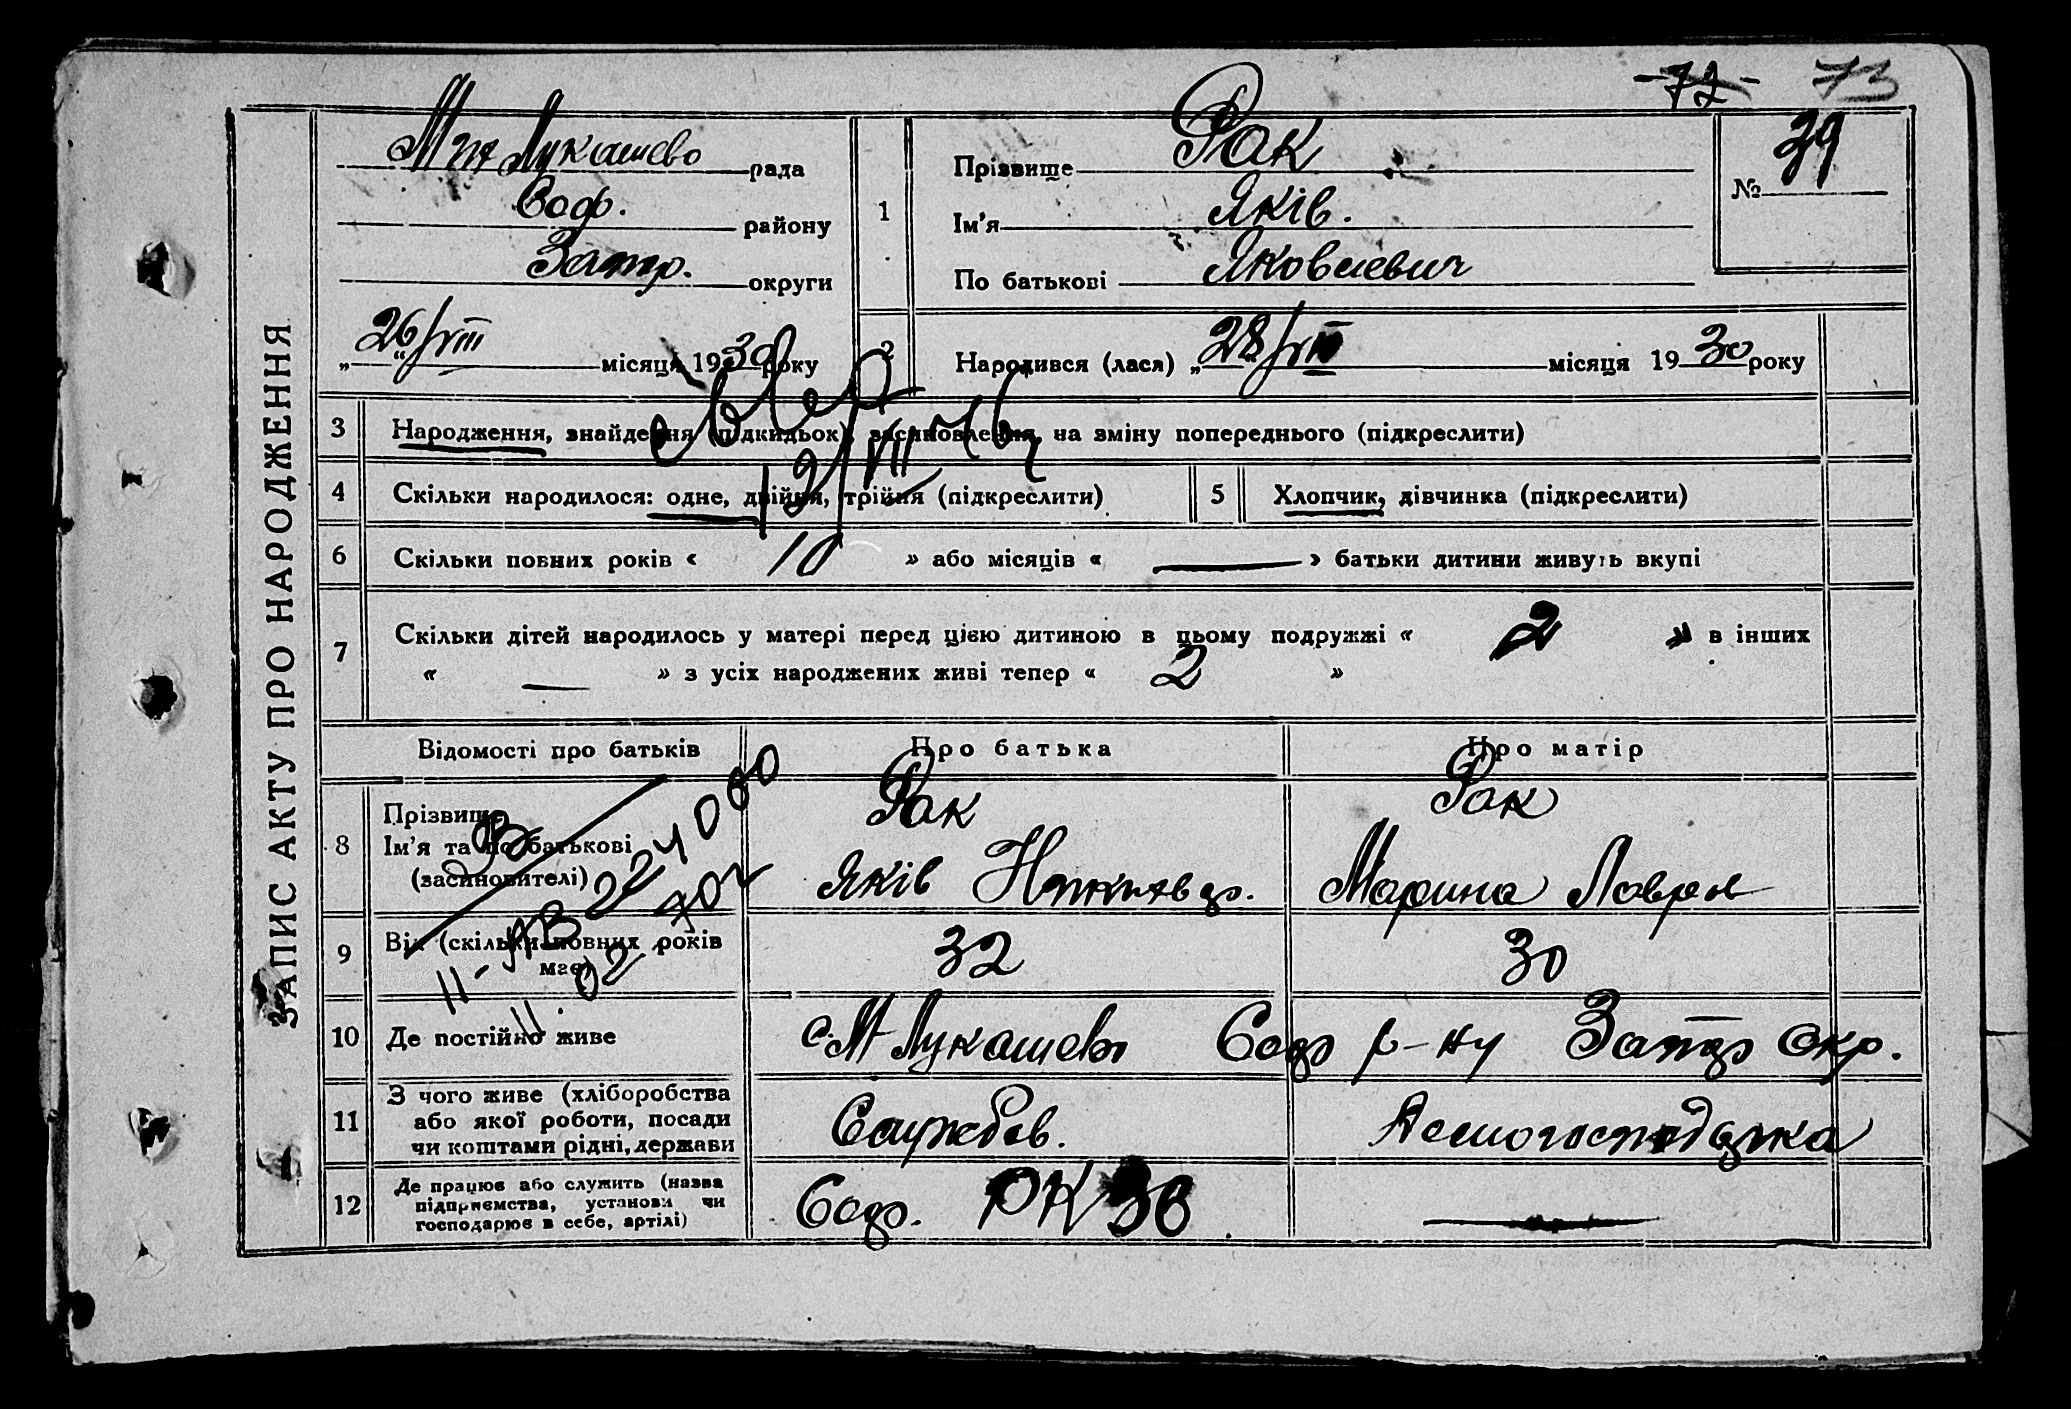 -72- 73
ЗАПИС АКТУ ПРО НАРОДЖЕННЯ
Лукашево рада
Соф. району
Запор. округи
„26“/VIII місяця 1930 року
№ 39
1 Прізвище Рак
Ім'я Яків.
По батькові Яковлевич
2 Народився (лася) „28/VII місяця 1930 року
3 Народження, знайдення (підкидьок), засиновлення, на зміну попереднього (підкреслити)
4 Скільки народилося: одне, двійня, трійня (підкреслити)
5 Хлопчик, дівчинка (підкреслити)
6 Скільки повних років « 10 » або місяців « — » батьки дитини живуть вкупі
7 Скільки дітей народилось у матері перед цією дитиною в цьому подружжі « 2 » в інших
« — » з усіх народжених живі тепер « 2 »
Відомості про батьків Про батька Про матір
8 Прізвище
Ім'я та по батькові
(засиновителі)
Рак
Яків
Рак
Марина Лаврен
9 Вік (скільки повних років
має)
32
30
10 Де постійно живе
с. М-Лукашево Соф р-ну Запор окр.
11 З чого живе (хліборобства
або якої роботи, посади
чи коштами рідні, держави
Службов.
Домогосподарка
12 Де працює або служить (назва
підприємства, установи чи
господарює в себе, артілі)
Соф. РК
—